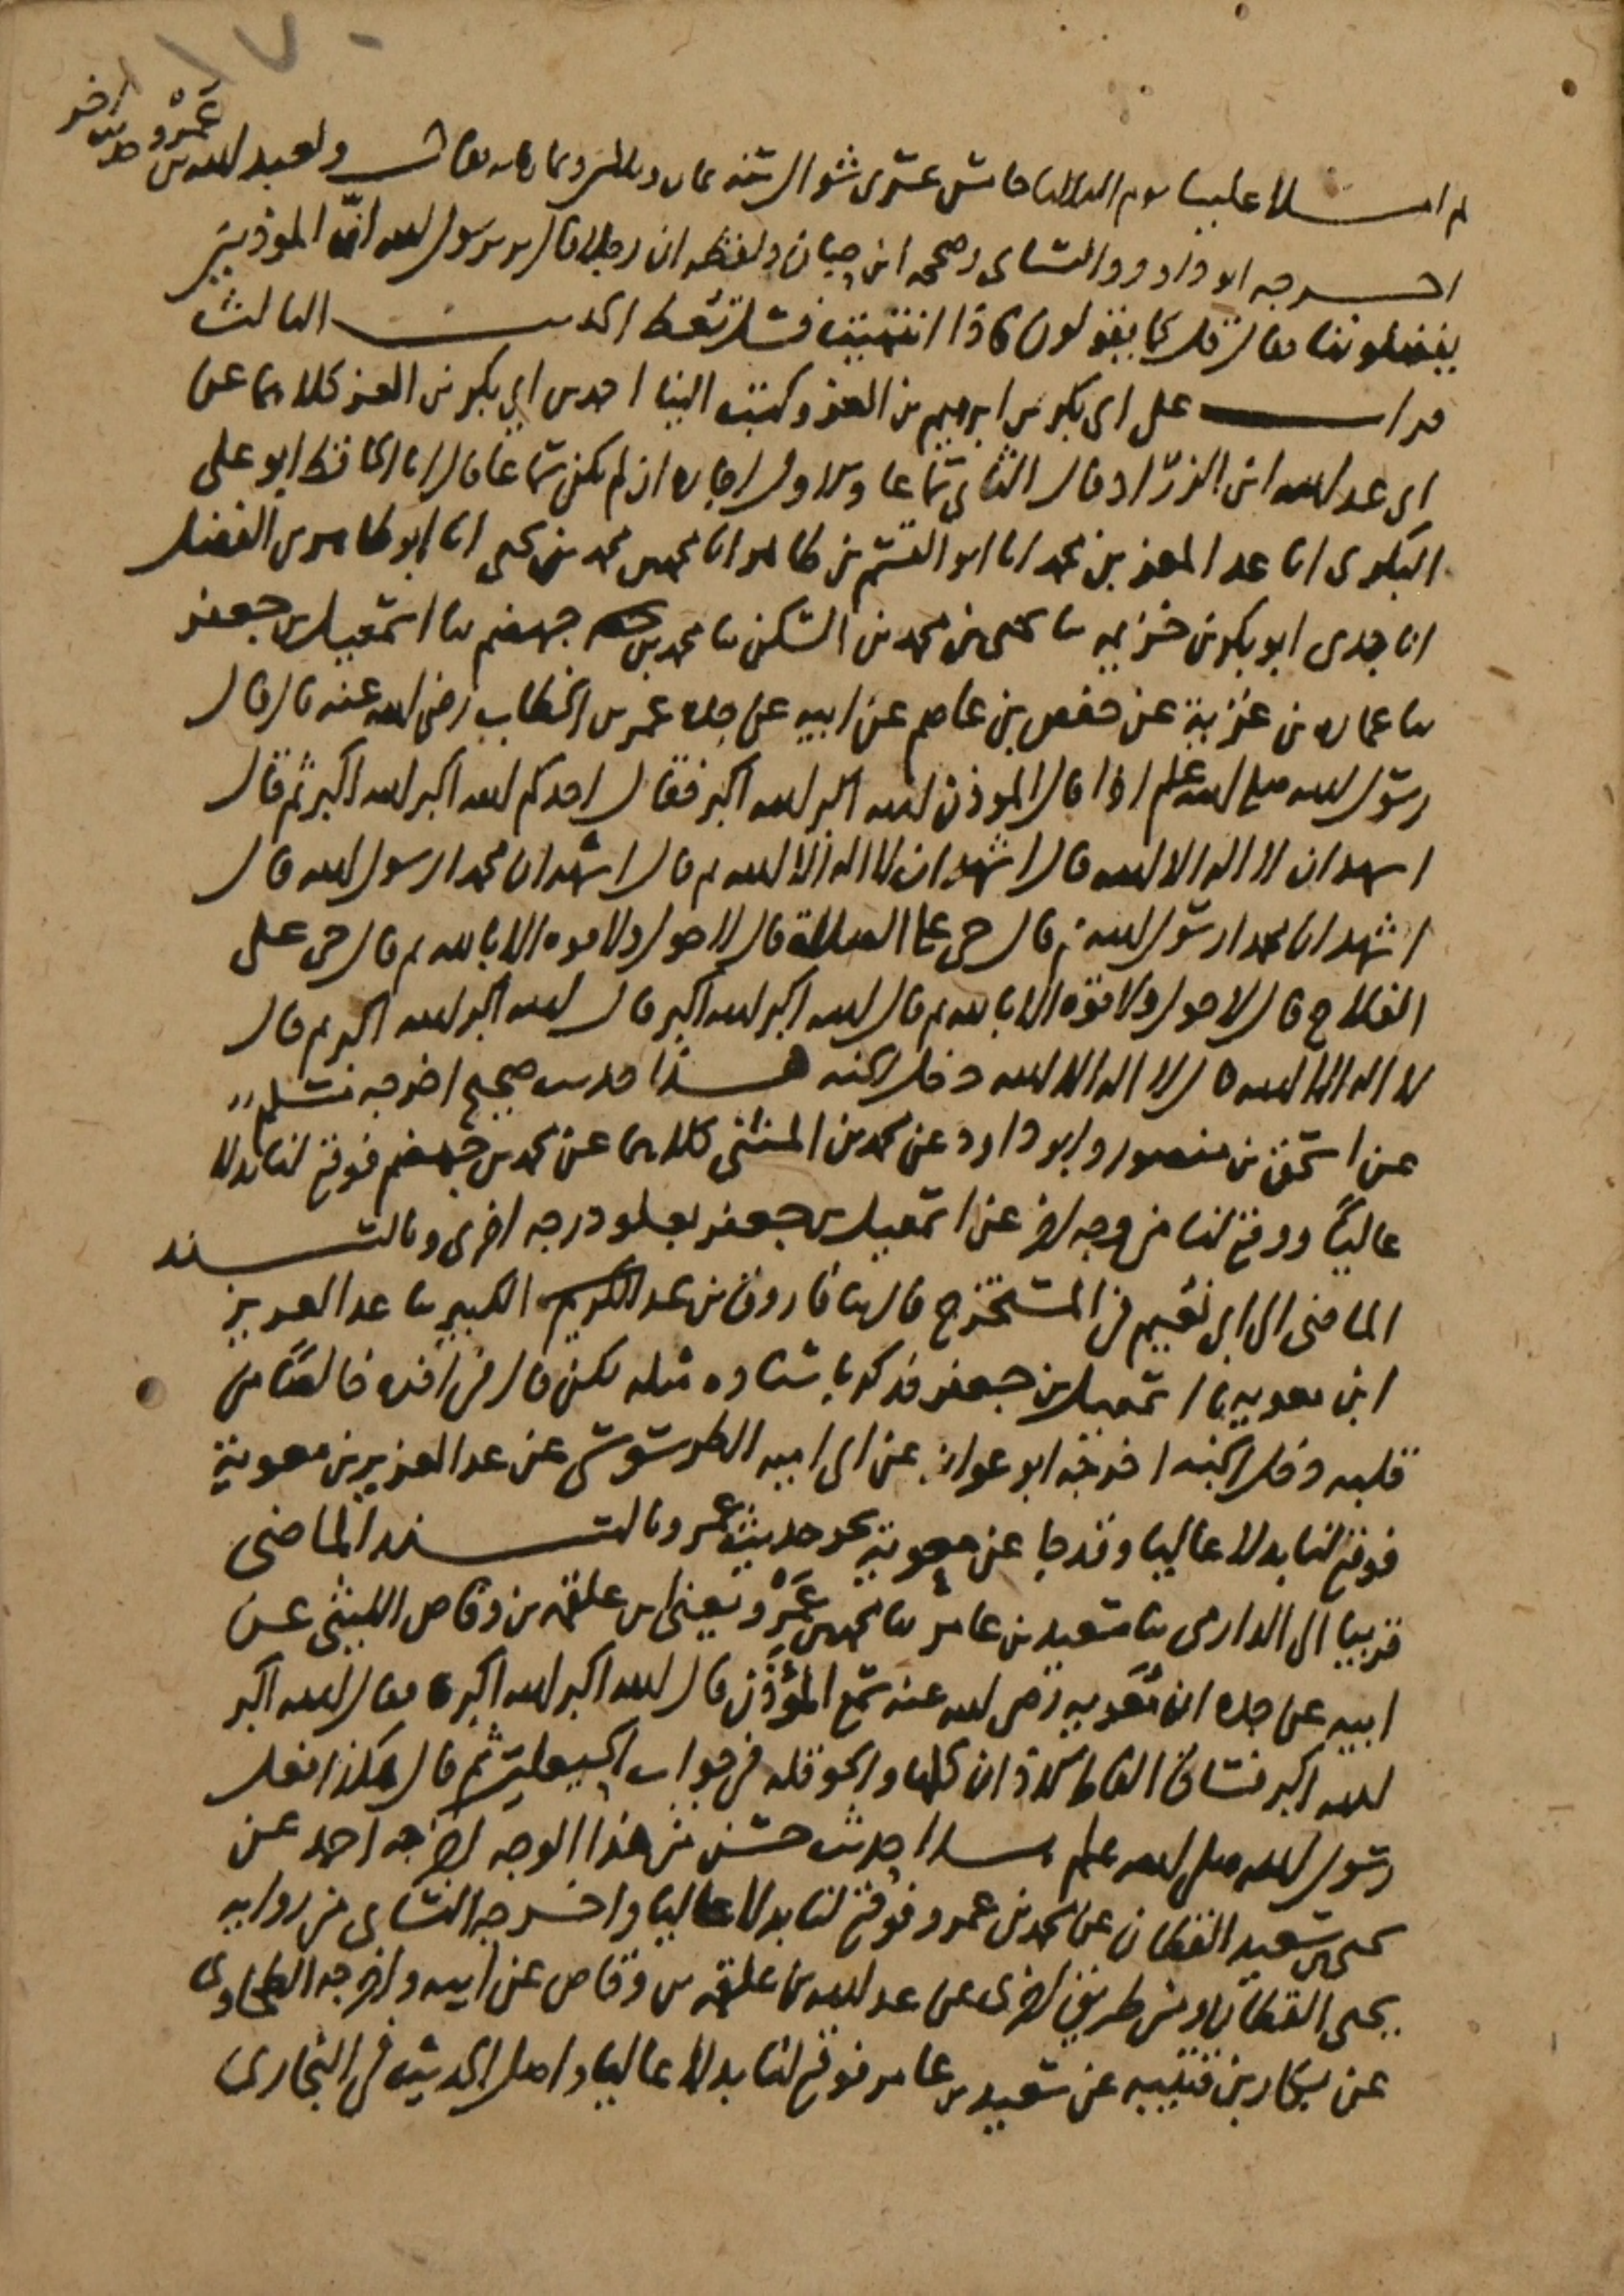 ثم املا علينا يوم الثلاثا خامس عشرى شوال سنه ثمان وثلاثين وثمان مايه فقال ولعبد الله بن عَمْرو حديث اخر
اخرجه ابو داود والنساى وصححه ابن حبان ولفظه ان رجلا قال يرسول الله انّ الموذنين
يفضلوننا فقال قل كما يقولون فاذا انتهيت فسل تعط الحديث الثالث
قرات على ابى بكر بن ابرهيم بن العز وكتب الينا احمد بن ابي بكر بن العز كلاهما عن
ابى عبد الله ابن الزرّاد قال الثانى سماعا وللاول اجازه ان لم يكن سماعا قال انا الحافظ ابو على
البكرى انا عبد المعز بن محمد انا ابو القسم بن طاهر انا محمد بن محمد بن يحيى انا ابو طاهر بن الفضل
انا جدى ابو بكر بن خزيمه ثنا يحيى بن محمد بن السكن ثنا محمد بن جهضم ثنا اسمعيل بن جعفر
ثنا عماره بن غزية عن حفص بن عاصم عن ابيه عن جده عمر بن الخطاب رضى الله عنه قال قال
رسول الله صلى الله عليه وسلم اذا قال الموذن الله اكبر الله اكبر فقال احدكم الله اكبر الله اكبر ثم قال
اشهد ان لا اله الا الله قال اشهد ان لا اله الا الله ثم قال اشهد ان محمدا رسول الله قال
اشهد ان محمدا رسول الله ثم قال حى على الصلاة قال لا حول ولا قوه الا بالله ثم قال حى على
الفلاح قال لا حول ولا قوه الا بالله ثم قال الله اكبر الله اكبر قال الله اكبر الله اكبر ثم قال
لا اله الا الله قال لا اله الا الله دخل الجنه هذا حديث صحيح اخرجه مسلم
عن اسحق بن منصور وابو داود عن محمد بن المثنى كلاهما عن محمد بن جهضم فوقع لنا بدلا
عاليًا ووقع لنا من وجه اخر عن اسمعيل بن جعفر بعلو درجه اخرى وبالسند
الماضى الى ابى نعيم فى المستخرج قال ثنا فاروق بن عبد الكبير ثنا عبد العزيز
ابن معويه ثنا اسمعيل بن جعفر فذكر باسناده مثله لكن قال فى اخره خالصًا من
قلبه دخل الجنه اخرجه ابو عوانه عن ابى اميه الطرسوسى عن عبد العزيز بن معوية
فوقع لنا بدلا عاليا وقد جا عن معوية نحو حديث عمر وبالسند الماضى
قريبا الى الدارمى ثنا سعيد بن عامر ثنا محمد بن عَمْرو يعنى ابن علقمه بن وقاص الليثى عن
ابيه عن جده ان معوية رضى الله عنه سمع المؤذن قال الله اكبر الله اكبر فقال الله اكبر
الله اكبر فساق الفاظ الاذان كلها والحوقله فى جواب الحيعلتين ثم قال هكذا فعل
رسول الله صلى الله عليه وسلم هذا حديث حسن من هذا الوجه اخرجه احمد عن
يحيى بن سعيد القطان عن محمد بن عمرو فوقع لنا بدلا عاليا واخرجه النساى من روايه
يحيى القطان ومن طريق اخرى عن عبد الله بن علقمه بن وقاص عن ابيه واخرجه الطحاوى
عن بكار بن قتيبه عن سعيد بن عامر فوقع لنا بدلا عاليا واصل الحديث فى البخارى